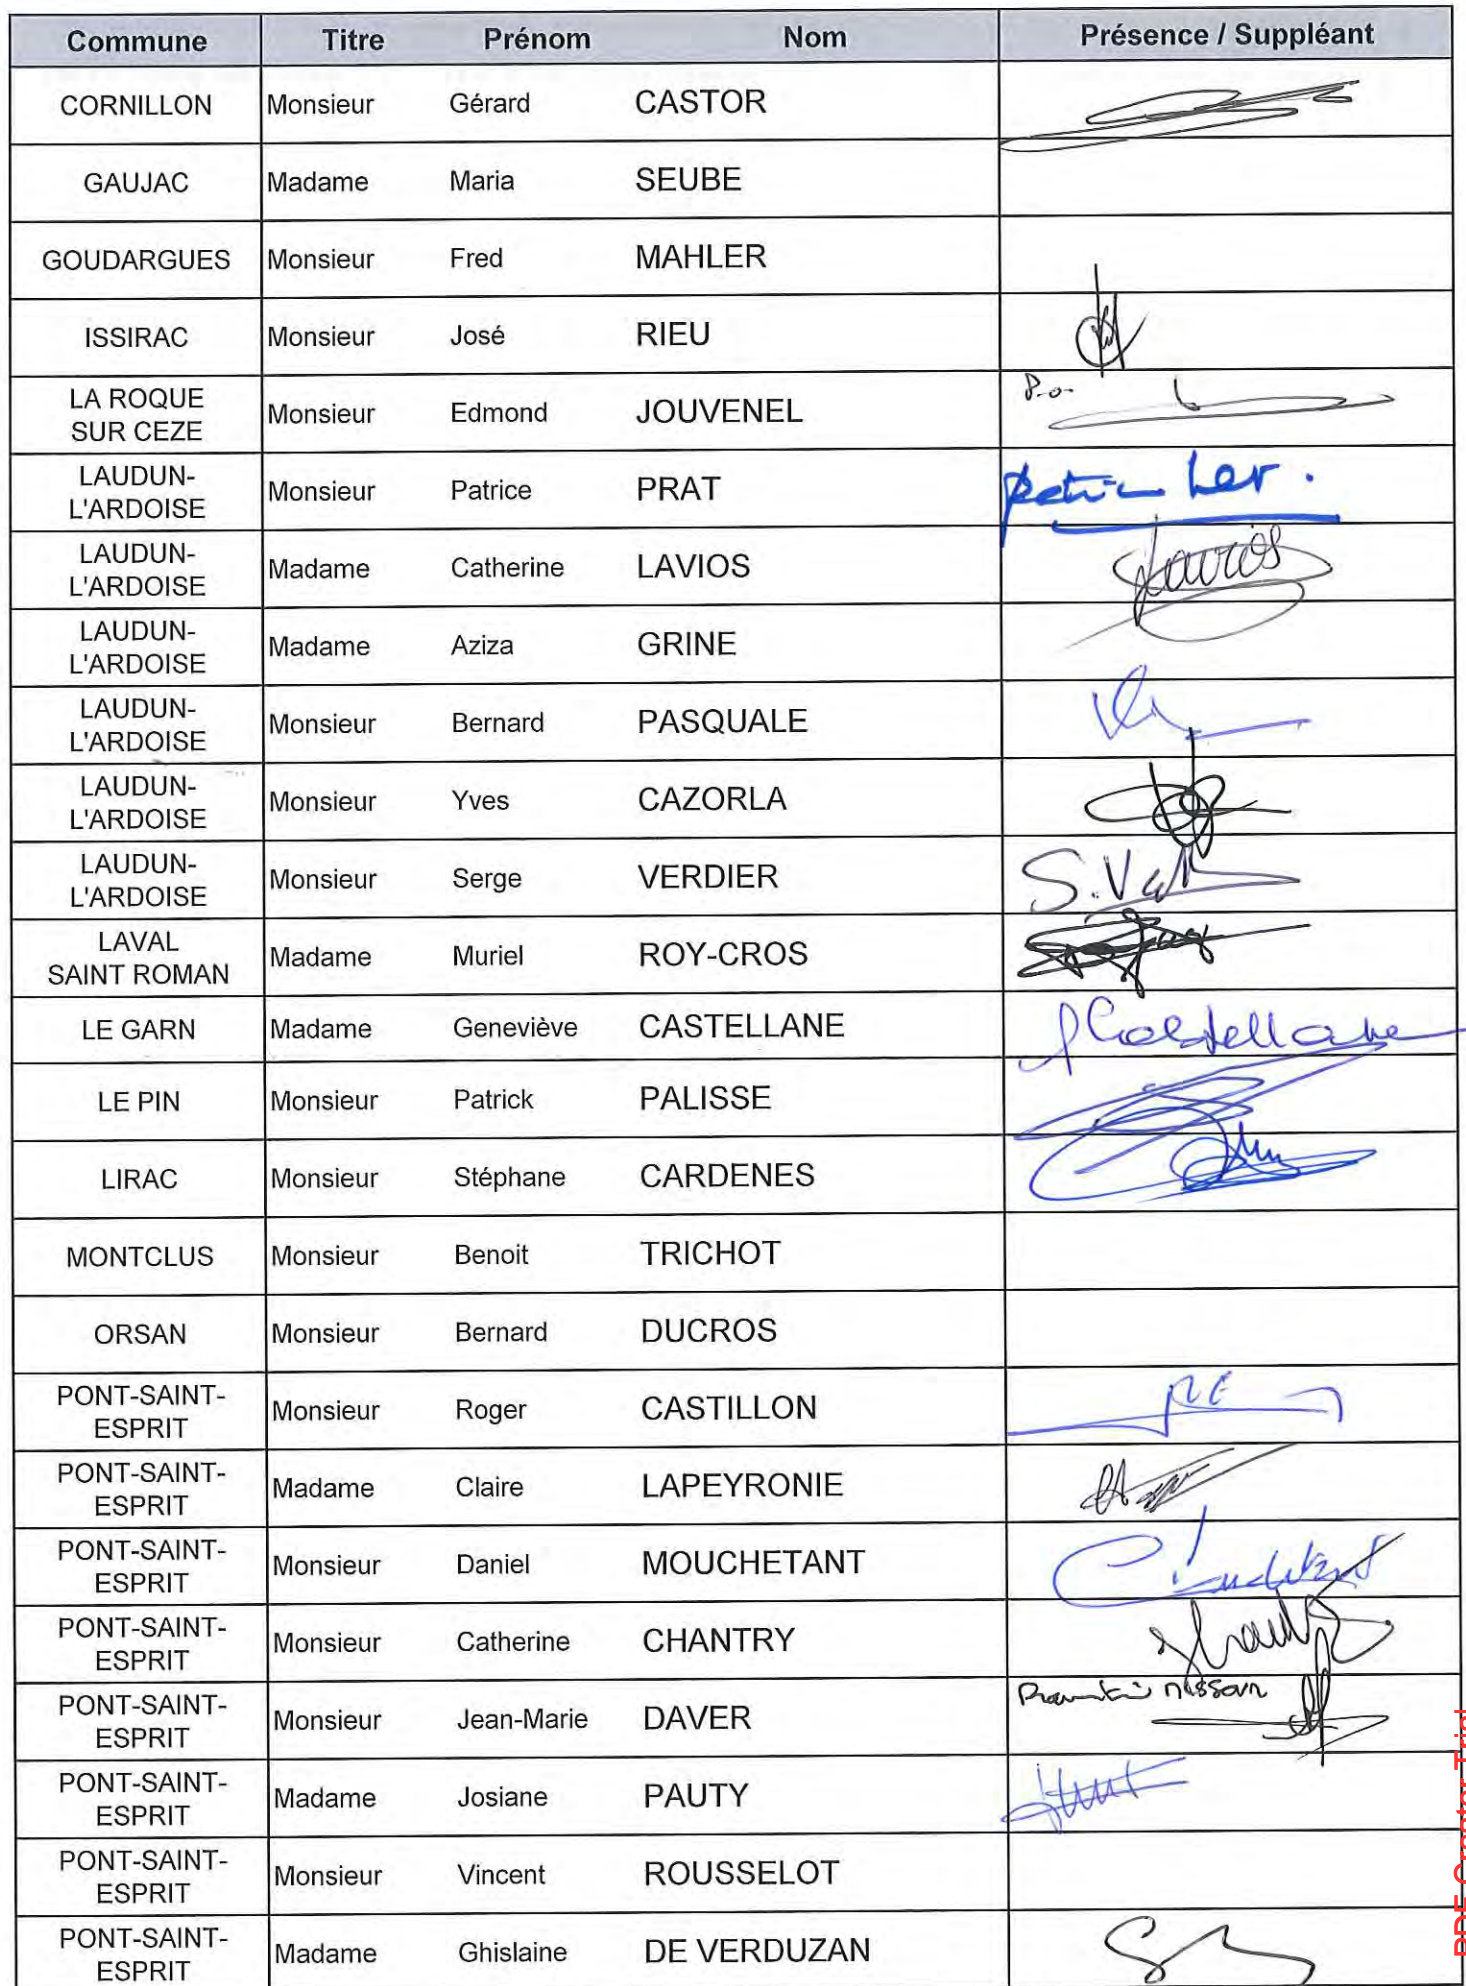 Commune Titre Prénom Nom Présence / Suppléant
CORNILLON Monsieur Gérard CASTOR
GAUJAC Madame Maria SEUBE
GOUDARGUES Monsieur Fred MAHLER
ISSIRAC Monsieur José RIEU
LA ROQUE
SUR CEZE Monsieur Edmond JOUVENEL P.o.
LAUDUN-
L'ARDOISE Monsieur Patrice PRAT
LAUDUN-
L'ARDOISE Madame Catherine LAVIOS Lavios
LAUDUN-
L'ARDOISE Madame Aziza GRINE
LAUDUN-
L'ARDOISE Monsieur Bernard PASQUALE
LAUDUN-
L'ARDOISE Monsieur Yves CAZORLA
LAUDUN-
L'ARDOISE Monsieur Serge VERDIER
LAVAL
SAINT ROMAN Madame Muriel ROY-CROS
LE GARN Madame Geneviève CASTELLANE Castellane
LE PIN Monsieur Patrick PALISSE
LIRAC Monsieur Stéphane CARDENES
MONTCLUS Monsieur Benoit TRICHOT
ORSAN Monsieur Bernard DUCROS
PONT-SAINT-
ESPRIT Monsieur Roger CASTILLON
PONT-SAINT-
ESPRIT Madame Claire LAPEYRONIE
PONT-SAINT-
ESPRIT Monsieur Daniel MOUCHETANT
PONT-SAINT-
ESPRIT Monsieur Catherine CHANTRY
PONT-SAINT-
ESPRIT Monsieur Jean-Marie DAVER
PONT-SAINT-
ESPRIT Madame Josiane PAUTY
PONT-SAINT-
ESPRIT Monsieur Vincent ROUSSELOT
PONT-SAINT-
ESPRIT Madame Ghislaine DE VERDUZAN
PDF Creator Trial